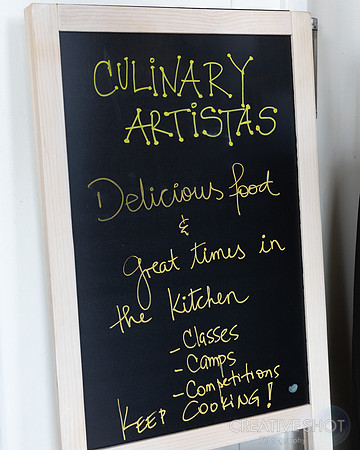 CULINARY
ARTISTAS
Delicious food
&
Great times in
the Kitchen
- Classes
- Camps
- Competitions
KEEP COOKING!
CREATIVE SHOT